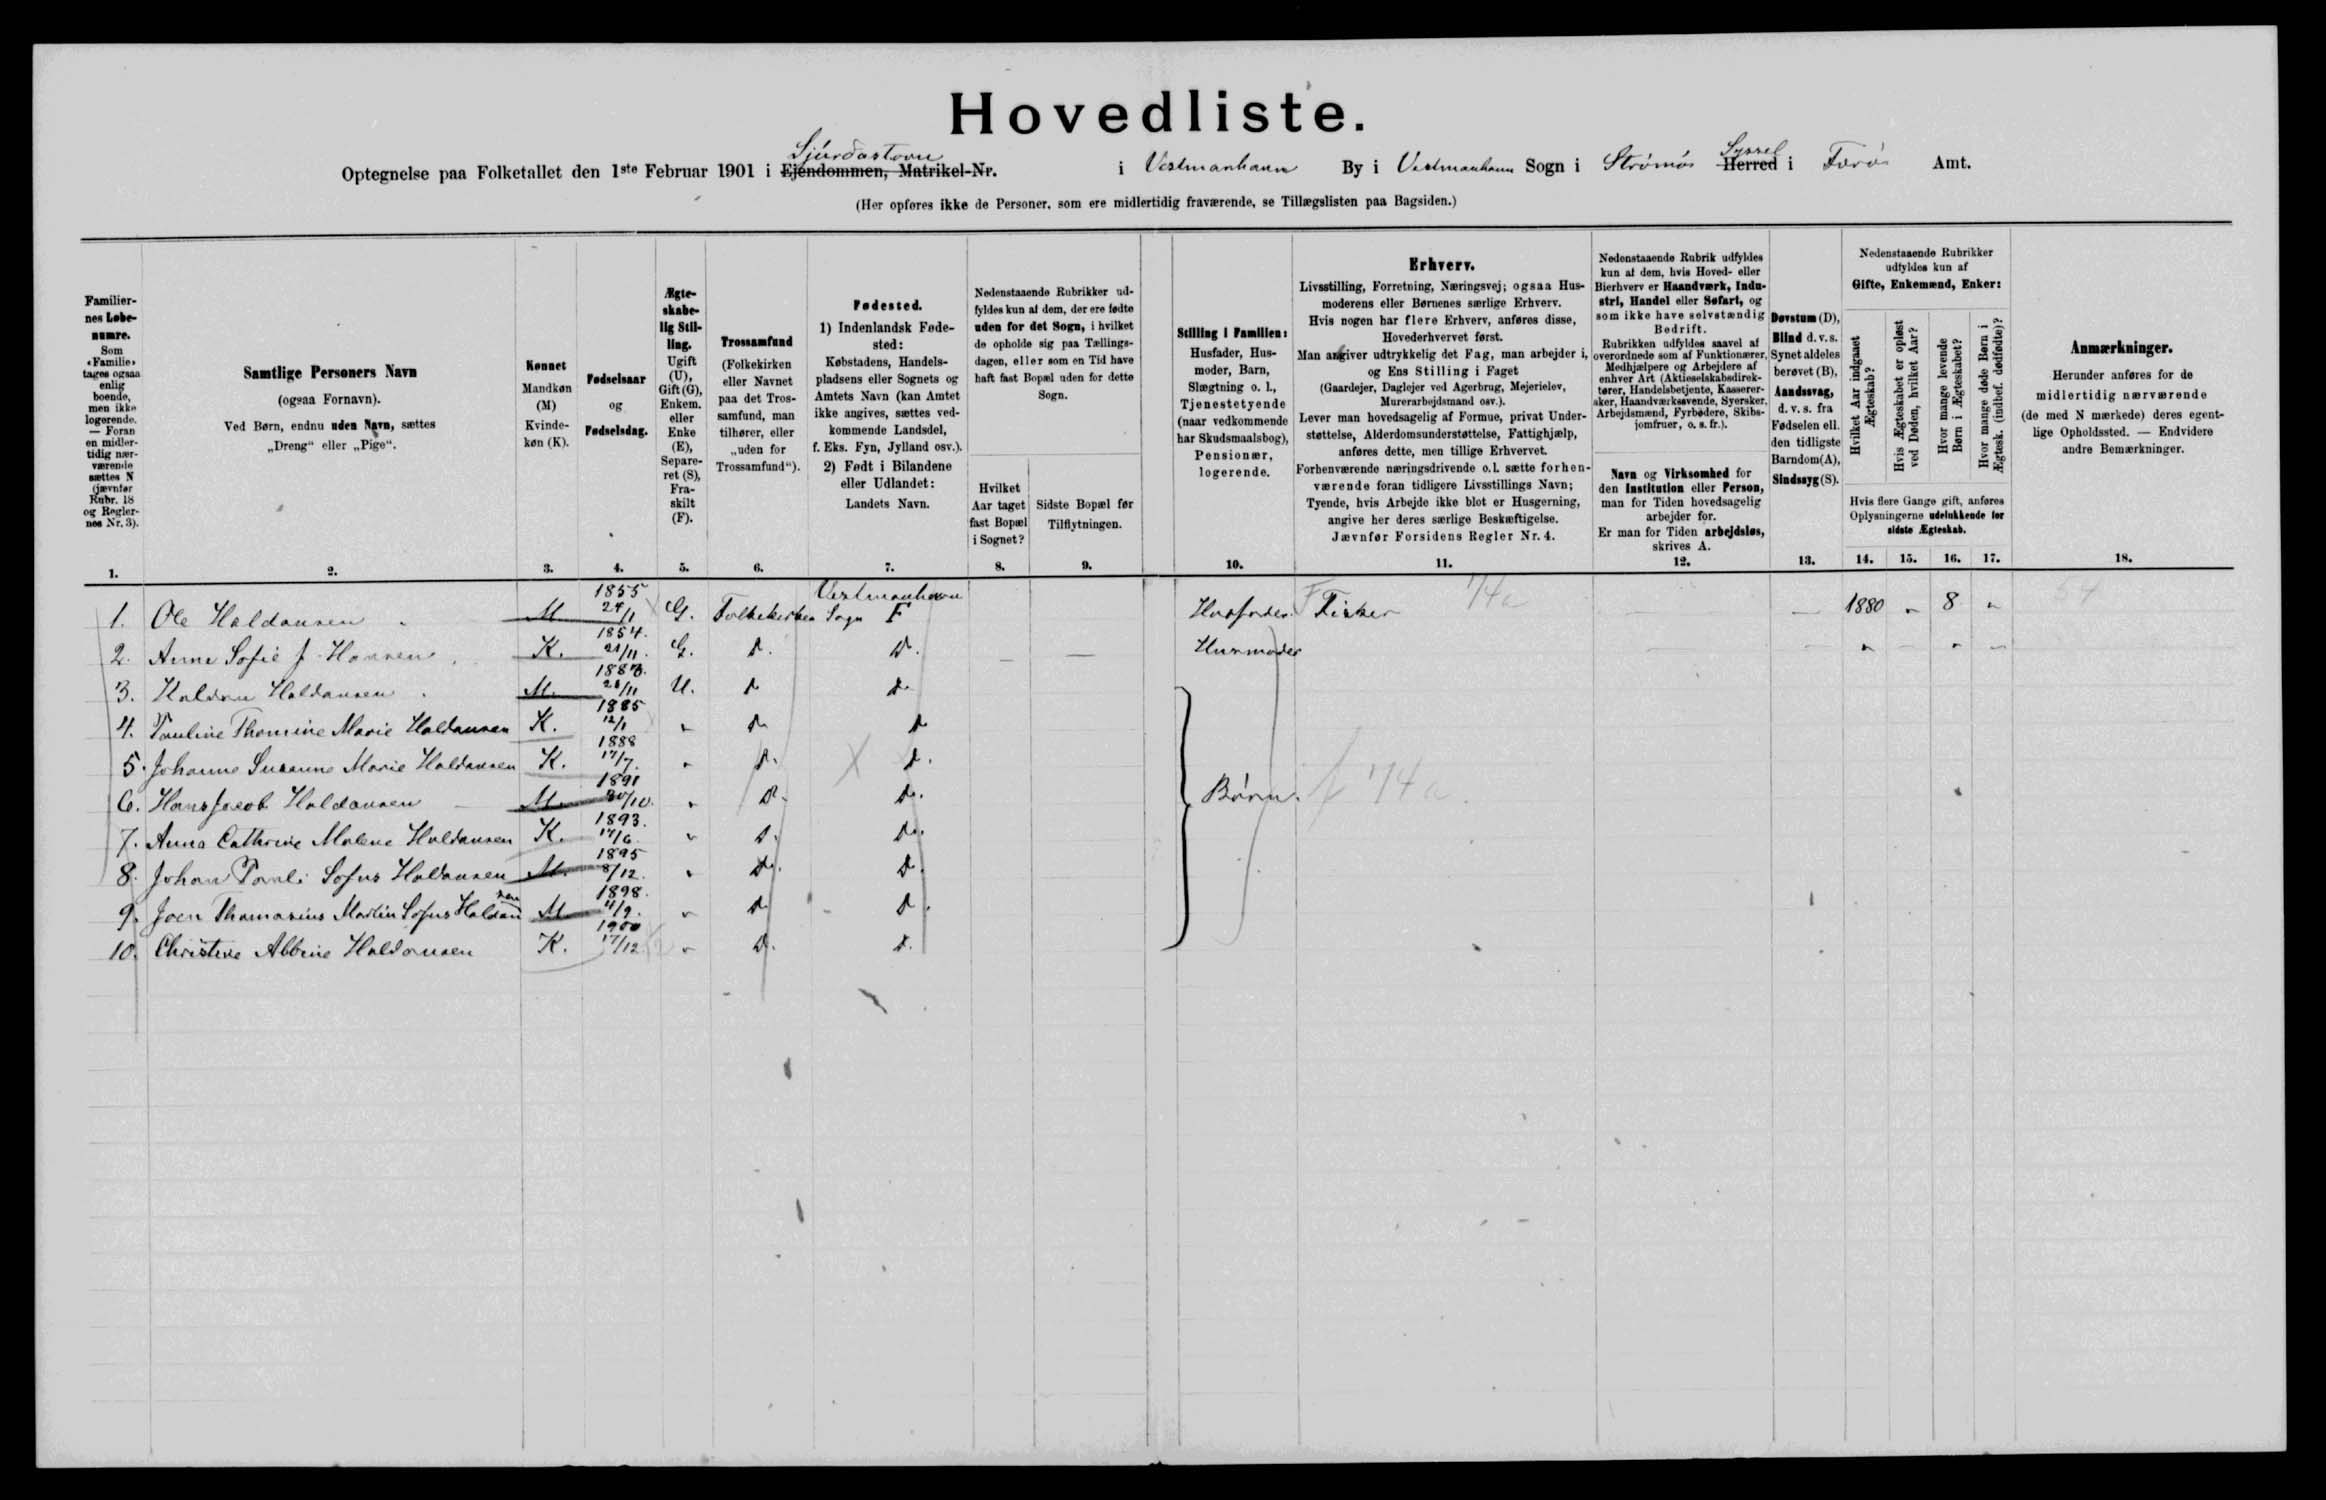 Hovedliste.
Sjúrdastovu Syssel
Optegnelse paa Folketallet den 1ste Februar 1901 i Ejendommen, Matrikel-Nr. i Vestmanhavn By i Vestmanhavn Sogn i Strömö Herred i Færø Amt.
(Her opføres ikke de Personer, som ere midlertidig fraværende, se Tillægslisten paa Bagsiden.)
Familiernes Løbenumre.
Som «Familie» tages ogsaa enlig boende, men ikke logerende. — Foran en midlertidig nærværende sættes N (jævnfør Rubr. 18 og Reglernes Nr. 3).
1.
Samtlige Personers Navn
(ogsaa Fornavn).
Ved Børn, endnu uden Navn, sættes
„Dreng“ eller „Pige“.
2.
Kønnet
Mandkøn (M)
Kvindekøn (K).
3.
Fødselsaar
og
Fødselsdag.
4.
Ægteskabelig Stilling.
Ugift (U), Gift (G), Enkem. eller Enke (E), Separeret (S), Fraskilt (F).
5.
Trossamfund
(Folkekirken eller Navnet paa det Trossamfund, man tilhører, eller „uden for Trossamfund“).
6.
Fødested.
1) Indenlandsk Fødested:
Købstadens, Handelspladsens eller Sognets og Amtets Navn (kan Amtet ikke angives, sættes vedkommende Landsdel, f. Eks. Fyn, Jylland osv.).
2) Født i Bilandene eller Udlandet:
Landets Navn.
7.
Nedenstaaende Rubrikker udfyldes kun af dem, der ere fødte uden for det Sogn, i hvilket de opholde sig paa Tællingsdagen, eller som en Tid have haft fast Bopæl uden for dette Sogn.
Hvilket Aar taget fast Bopæl i Sognet?
8.
Sidste Bopæl før Tilflytningen.
9.
Stilling i Familien:
Husfader, Husmoder, Barn, Slægtning o. l., Tjenestetyende (naar vedkommende har Skudsmaalsbog), Pensionær, logerende.
10.
Erhverv.
Livsstilling, Forretning, Næringsvej; ogsaa Husmoderens eller Børnenes særlige Erhverv.
Hvis nogen har flere Erhverv, anføres disse, Hovederhvervet først.
Man angiver udtrykkelig det Fag, man arbejder i, og Ens Stilling i Faget
(Gaardejer, Daglejer ved Agerbrug, Mejerielev, Murerarbejdsmand osv.).
Lever man hovedsagelig af Formue, privat Understøttelse, Alderdomsunderstøttelse, Fattighjælp, anføres dette, men tillige Erhvervet.
Forhenværende næringsdrivende o. l. sætte forhenværende foran tidligere Livsstillings Navn;
Tyende, hvis Arbejde ikke blot er Husgerning, angive her deres særlige Beskæftigelse.
Jævnfør Forsidens Regler Nr. 4.
11.
Nedenstaaende Rubrik udfyldes kun af dem, hvis Hoved- eller Bierhverv er Haandværk, Industri, Handel eller Søfart, og som ikke have selvstændig Bedrift.
Rubrikken udfyldes saavel af overordnede som af Funktionærer, Medhjælpere og Arbejdere af enhver Art (Aktieselskabsdirektører, Handelsbetjente, Kasserersker, Haandværkssvende, Syersker, Arbejdsmænd, Fyrbødere, Skibsjomfruer, o. s. fr.).
Navn og Virksomhed for den Institution eller Person, man for Tiden hovedsagelig arbejder for.
Er man for Tiden arbejdsløs, skrives A.
12.
Døvstum (D),
Blind d. v. s. Synet aldeles berøvet (B),
Aandssvag, d. v. s. fra Fødselen ell. den tidligste Barndom (A),
Sindssyg (S).
13.
Nedenstaaende Rubrikker udfyldes kun af
Gifte, Enkemænd, Enker:
Hvilket Aar indgaaet Ægteskab?
Hvis Ægteskabet er opløst ved Døden, hvilket Aar?
Hvor mange levende Børn i Ægteskabet?
Hvor mange døde Børn i Ægtesk. (indbef. dødfødte)?
Hvis flere Gange gift, anføres Oplysningerne udelukkende for sidste Ægteskab.
14. 15. 16. 17.
Anmærkninger.
Herunder anføres for de midlertidig nærværende (de med N mærkede) deres egentlige Opholdssted. — Endvidere andre Bemærkninger.
18.
1. Ole Haldansen M 1855 24/1 G. Folkekirken Vestmanhavn Sogn F Husfader F Fisker 74a 1880 " 8 " 54
2. Anne Sofie J Hansen K. 1854. 21/11. G. D. D. — — Husmoder
3. Haldan Haldansen M. 1883. 28/11 U. D D
4. Pauline Thomine Marie Haldansen K. 1885 12/1 " D D
5. Johanne Susanne Marie Haldansen K. 1888 17/7. " D. D.
6. Hans Jacob Haldansen M. 1891 30/10. " D. D. Børn. f 74a.
7. Anna Cathrine Malene Haldansen K. 1893. 17/6. " D. D.
8. Johan Pauli Sofus Haldansen M 1895 8/12. " D. D.
9. Joen Thomasius Martin Sofus Haldansen M 1898. 11/9. " D D.
10. Christine Abbine Haldansen K. 1900 17/12 " D. D.